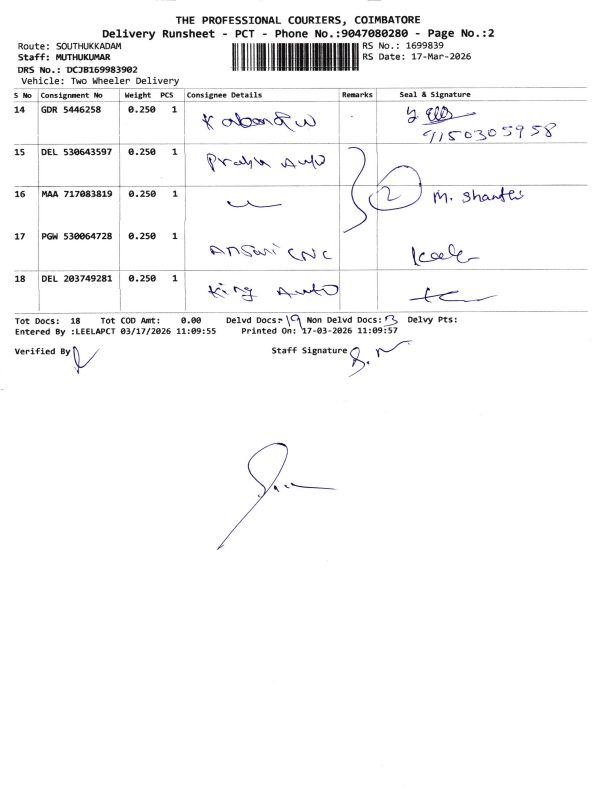 THE PROFESSIONAL COURIERS, COIMBATORE
Delivery Runsheet - PCT - Phone No.:9047080280 - Page No.:2
Route: SOUTHUKKADAM RS No.: 1699839
Staff: MUTHUKUMAR RS Date: 17-Mar-2026
DRS No.: DCJB169983902
Vehicle: Two Wheeler Delivery
S No Consignment No Weight PCS Consignee Details Remarks Seal & Signature
14 GDR 5446258 0.250 1
9150305958
15 DEL 530643597 0.250 1 Auto
16 MAA 717083819 0.250 1 2 M. Shanthi
17 PGW 530064728 0.250 1 Ansari CNC
18 DEL 203749281 0.250 1 King Auto
Tot Docs: 18 Tot COD Amt: 0.00 Delvd Docs: 19 Non Delvd Docs: 3 Delvy Pts:
Entered By :LEELAPCT 03/17/2026 11:09:55 Printed On: 17-03-2026 11:09:57
Verified By Staff Signature